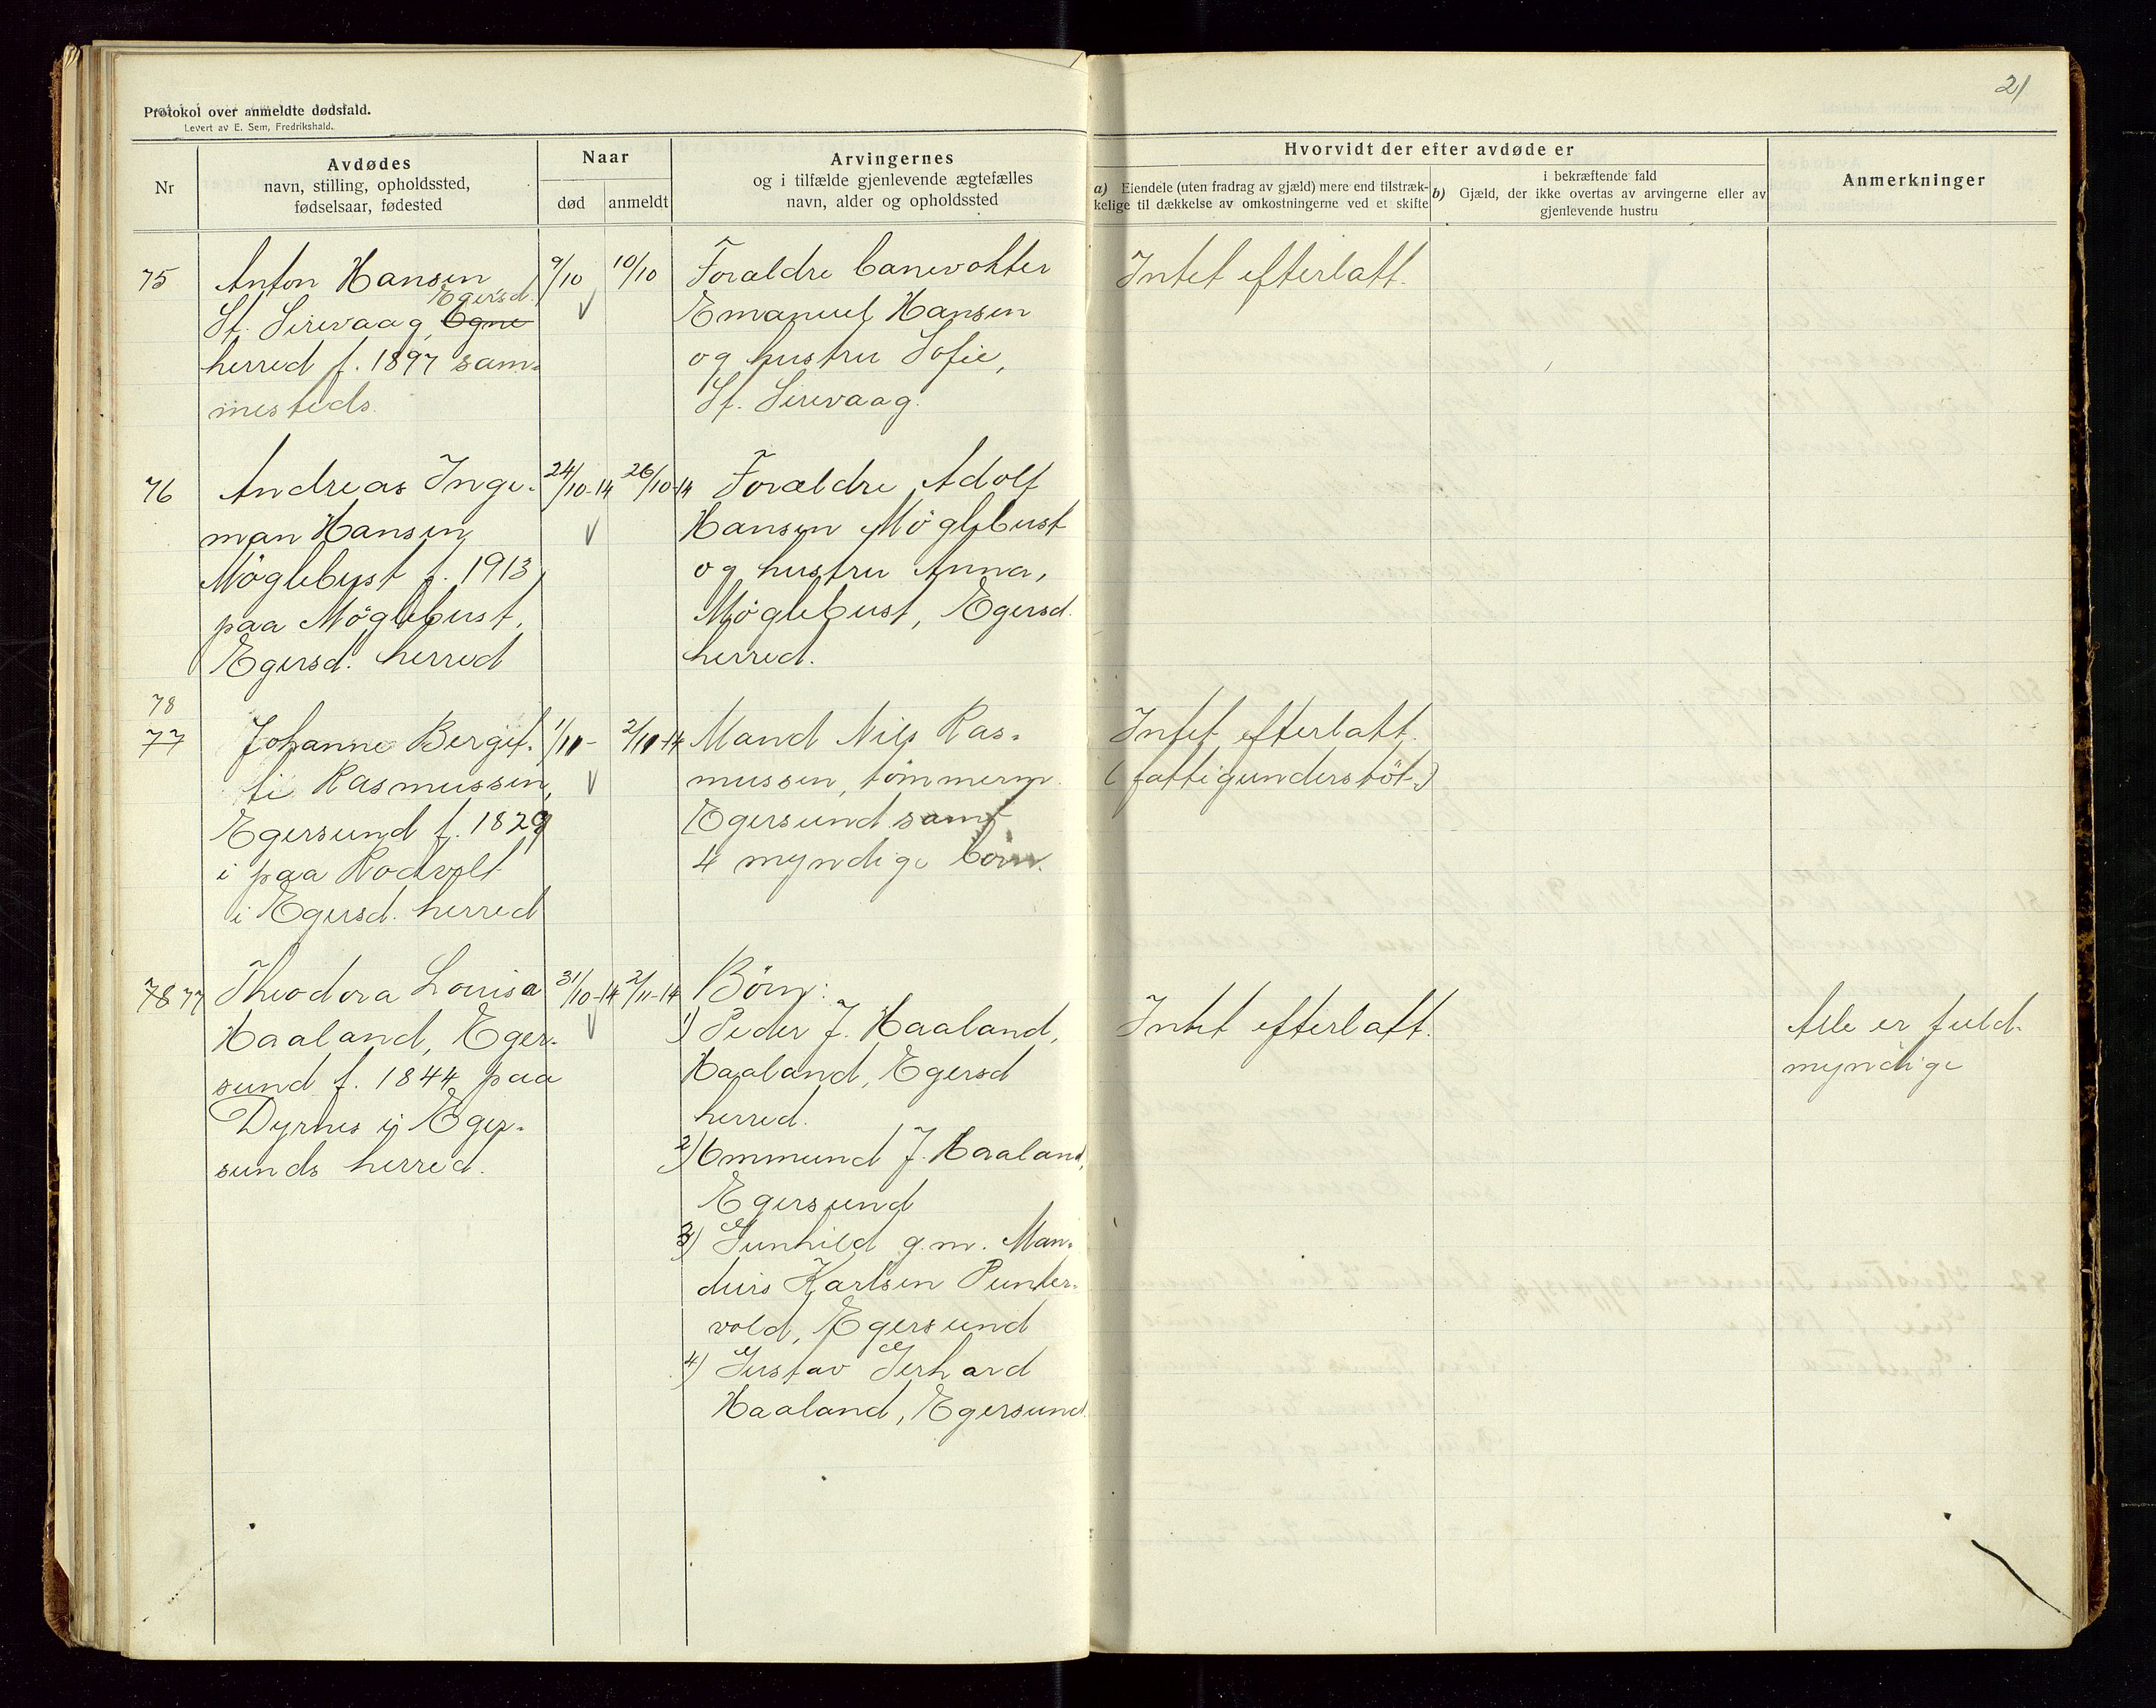 21
Protokol over anmeldte dødsfald.
Levert av E. Sem, Fredrikshald.
Nr
Avdødes
navn, stilling, opholdssted,
fødselsaar, fødested
Naar
død
anmeldt
Arvingernes
og i tilfælde gjenlevende ægtefælles
navn, alder og opholdssted
Hvorvidt der efter avdøde er
a) Eiendele (uten fradrag av gjæld) mere end tilstræk-
kelige til dækkelse av omkostningerne ved et skifte
i bekræftende fald
b) Gjæld, der ikke overtas av arvingerne eller av
gjenlevende hustru
Anmerkninger
75
Anton Hansen
Egersd.
St. Sirevaag, Ogne
herred f. 1897 sam-
mesteds
9/10
10/10
Forældre banevokter
Emanuel Hansen
og hustru Sofie,
St. Sirevaag.
Intet efterlatt.
76
Andreas Inge-
man Hansen
Möglebust f. 1913
paa Möglebust,
Egersd. herred
24/10-14
26/10-14
Forældre Adolf
Hansen Möglebust
og hustru Anna,
Möglebust, Egersd.
herred.
78
77
Johanne Bergit-
te Rasmussen,
Egersund f. 1829
i paa Rodvelt
i Egersd. herred
1/11-
2/11-14
Mand Nils Ras-
mussen, tömmerm.
Egersund samt
4 myndige börn.
Intet efterlatt.
(fattigunderstöt.)
78 77
Theodora Louisa
Haaland, Eger-
sund f. 1844 paa
Dyrnes i Eger-
sunds herred.
31/10-14
2/11-14
Börn:
1) Peder J. Haaland,
Haaland, Egersd
herred.
2) Ommund J. Haaland,
Egersund
3) Gunhild g.m. Man-
dius Karlsen Punter-
vold, Egersund
4) Gustav Gerhard
Haaland, Egersund.
Intet efterlatt.
Alle er fuld-
myndige